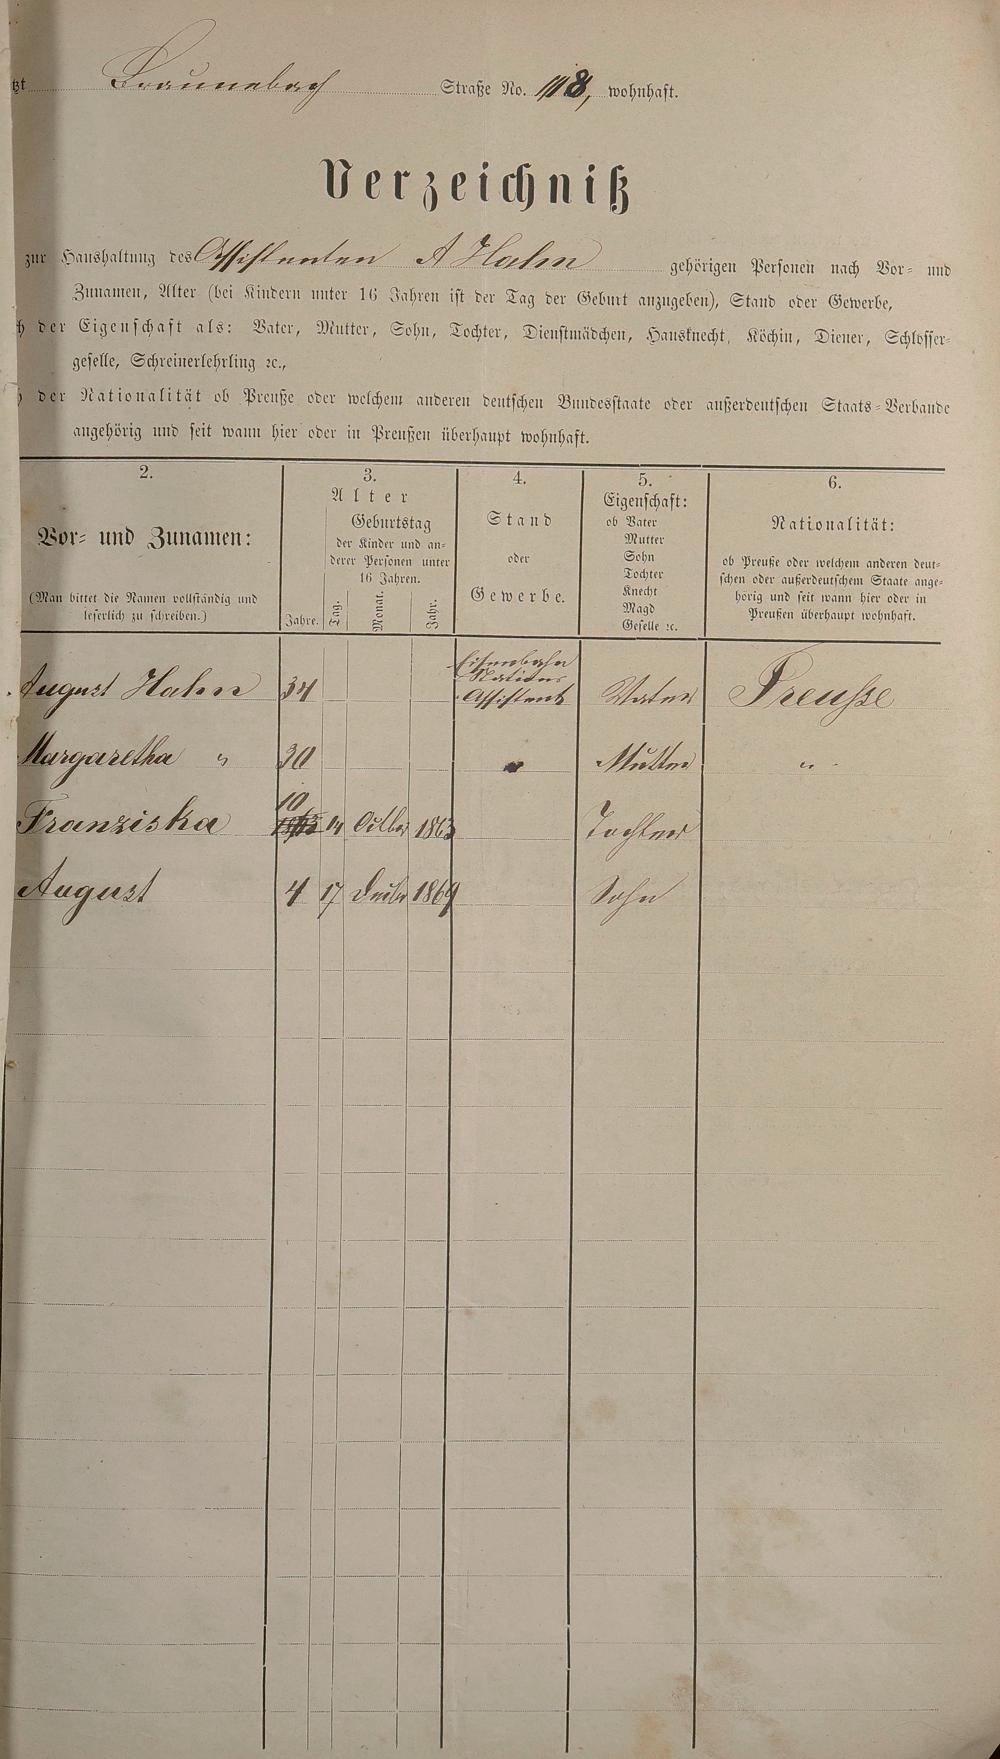 Braunebach Straße No. 118, wohnhaft.
Verzeichniß
zur Haushaltung des Assistenten A Hahn gehörigen Personen nach Vor- und
Zunamen, Alter (bei Kindern unter 16 Jahren ist der Tag der Geburt anzugeben), Stand oder Gewerbe,
der Eigenschaft als: Vater, Mutter, Sohn, Tochter, Dienstmädchen, Hausknecht, Köchin, Diener, Schlosser-
geselle, Schreinerlehrling ꝛc.,
der Nationalität ob Preuße oder welchem anderen deutschen Bundesstaate oder außerdeutschen Staats-Verbande
angehörig und seit wann hier oder in Preußen überhaupt wohnhaft.
2. 3. 4. 5. 6.
Vor- und Zunamen:
(Man bittet die Namen vollständig und
leserlich zu schreiben.)
Alter
Geburtstag
der Kinder und an-
derer Personen unter
16 Jahren.
Jahre. Tag. Monat. Jahr.
Stand
oder
Gewerbe.
Eigenschaft:
ob Vater
Mutter
Sohn
Tochter
Knecht
Magd
Geselle ꝛc.
Nationalität:
ob Preuße oder welchem anderen deut-
schen oder außerdeutschem Staate ange-
hörig und seit wann hier oder in
Preußen überhaupt wohnhaft.
August Hahn 34 Eisenbahn Stations Assistent Vater Preuße
Margaretha " 30 " Mutter "
Franziska 10 14 Octbr 1863 Tochter
August 4 17 Decbr 1869 Sohn